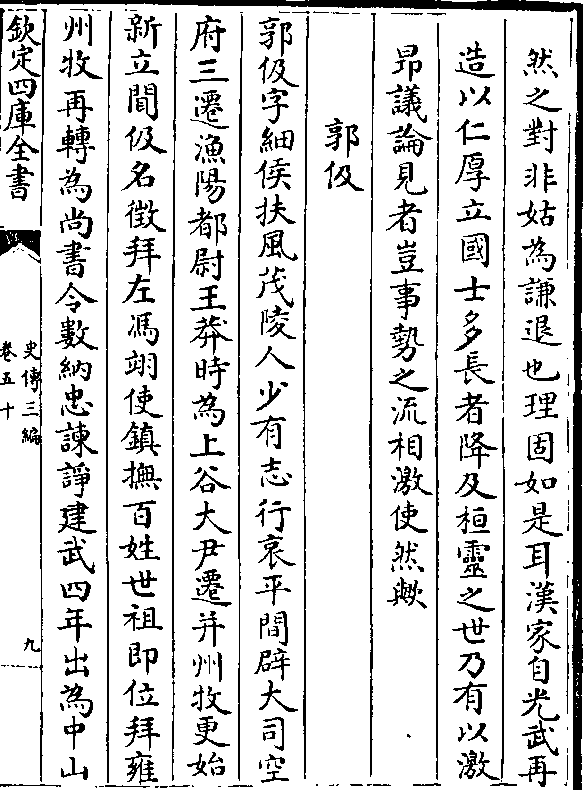 然之對非姑為謙退也理固如是耳漢家自光武再
造以仁厚立國士多長者降及桓靈之世乃有以激
昂議論見者豈事勢之流相激使然歟
郭伋
郭伋字細侯扶風茂陵人少有志行哀平間辟大司空
府三遷漁陽都尉王莽時為上谷大尹遷并州牧更始
新立間伋名徵拜左馮翊使鎮撫百姓世祖即位拜雍
州牧再轉為尚書令數納忠諫諍建武四年出為中山
欽定四庫全書
史傳三編
卷五十
九